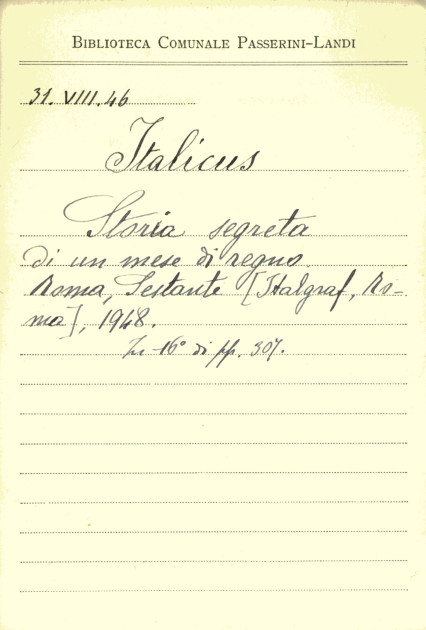 BIBLIOTECA COMUNALE PASSERINI-LANDI
31. VIII. 46
Italicus
Storia segreta
di un mese di regno.
Roma, Sestante [Italgraf, Ro-
ma], 1948.
In-16° di pp. 307.